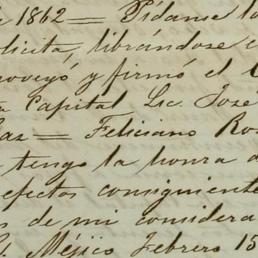 1862 = Pídanse lo
licita, librándose e
roveyó y firmó el C
Capital Lic. José
as = Feliciano Ro
tengo la honra d
efectos consiguiente
s de mi considera
Méjico Febrero 15